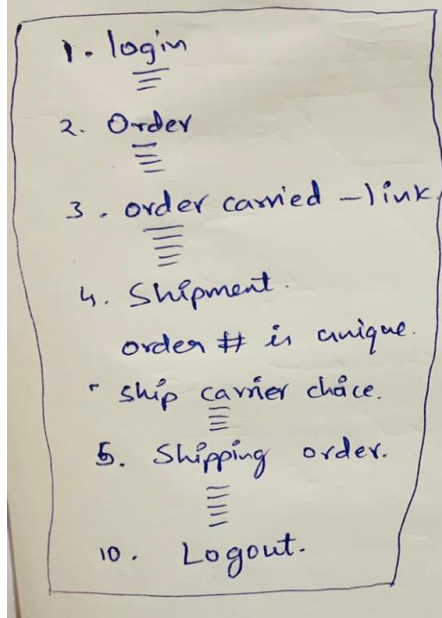 1. login
2. Order
3. order carried - link
4. Shipment.
order # is unique.
ship carrier choice.
5. Shipping order.
10. Logout.